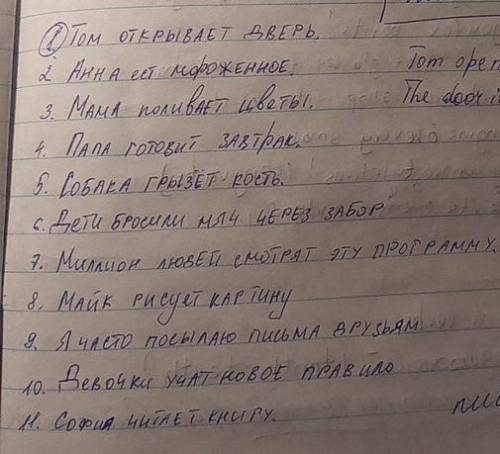 1 Том открывает дверь.
2 Анна ест мороженное. Tom ope
3. Мама поливает цветы. The door i
4. Папа готовит завтрак.
5. Собака грызёт кость.
6. Дети бросили мяч через забор
7. Миллион людей смотрят эту программу.
8. Майк рисует картину
9. Я часто посылаю письма друзьям
10. Девочки учат новое правило
11. София читает книгу.